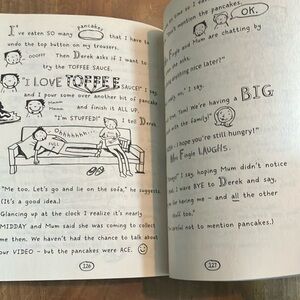 I've eaten SO many pancakes that I have to
undo the top button on my trousers.
Then Derek asks if I want to
try the TOFFEE SAUCE.
"I LOVE TOFFEE SAUCE!" I say,
and I pour some over another bit of pancake
and finish it ALL up.
"I'M STUFFED!" I tell Derek
"Me too. Let's go and lie on the sofa," he suggests.
(It's a good idea.)
Glancing up at the clock I realize it's nearly
MIDDAY and Mum said she was coming to collect
me then. We haven't had the chance to talk about
our VIDEO - but the pancakes were ACE.
126
mention the pancakes.
OK.
Fingle and Mum are chatting by
anything nice later?"
," I say.
we're having a BIG
with the family!"
I hope you're still hungry!"
Mrs Fingle LAUGHS.
I say, hoping Mum didn't notice
I wave BYE to Derek and say,
for having me - and all the other
stuff too."
careful not to mention pancakes.)
127